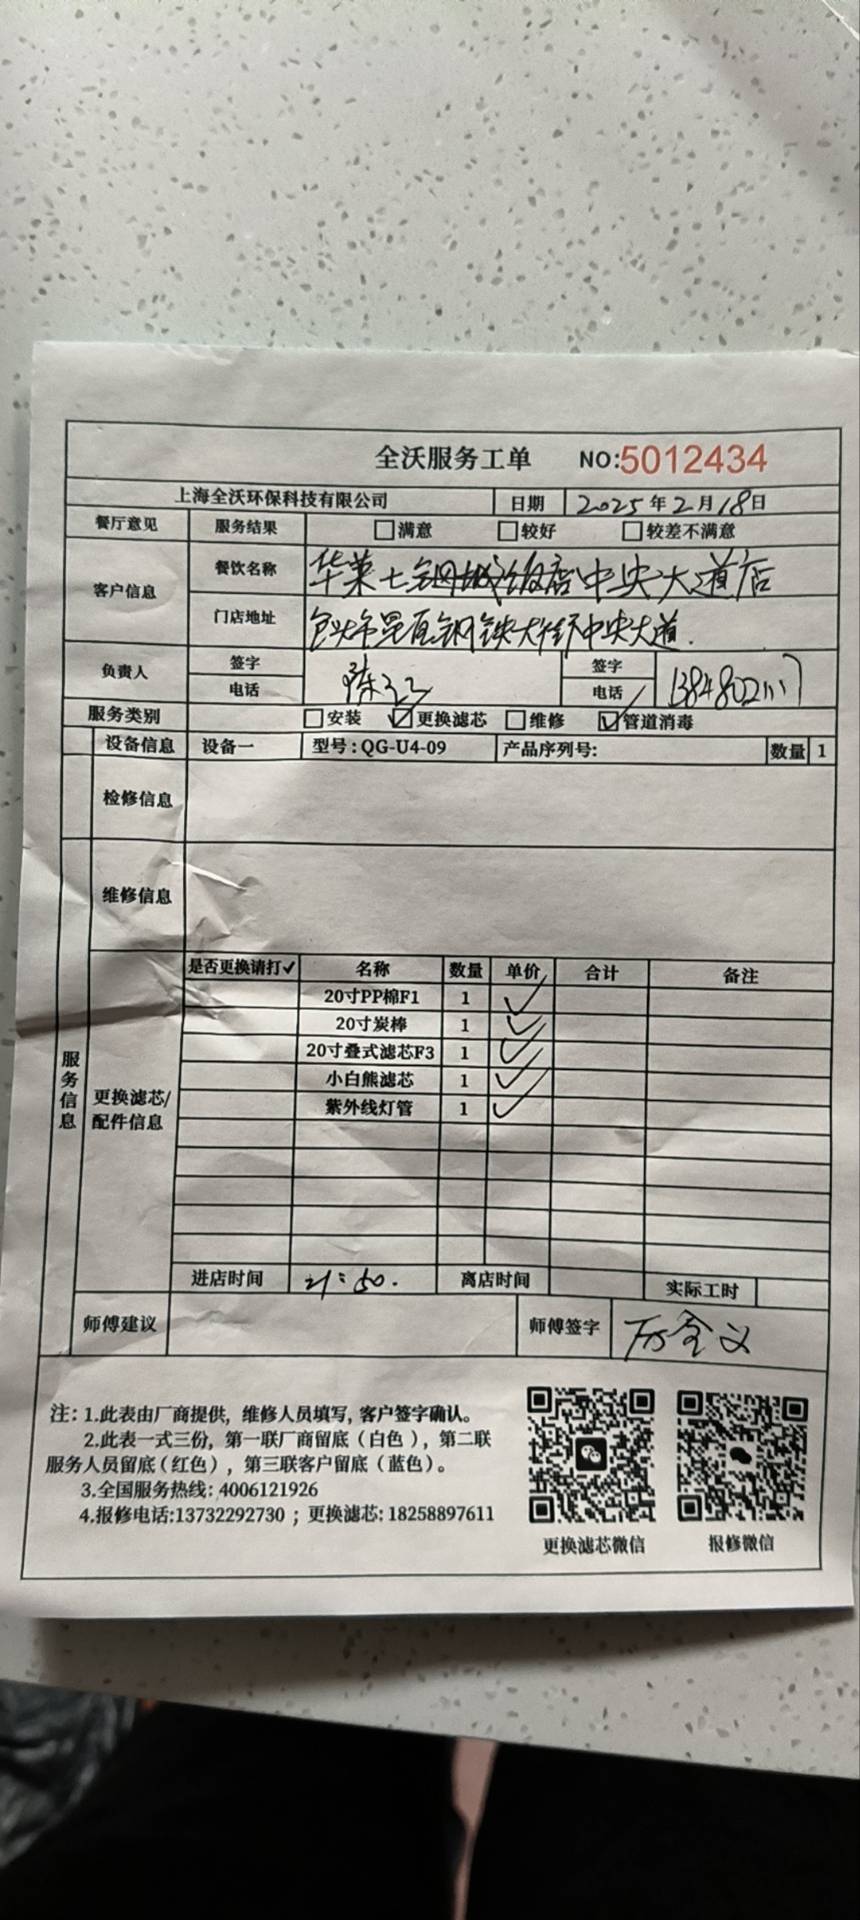 全沃服务工单 NO:5012434
上海全沃环保科技有限公司 日期 2025年2月18日
餐厅意见 服务结果 满意 较好 较差不满意
客户信息 餐饮名称 华莱士 中央大道店
门店地址 包头市昆区钢铁大街中央大道.
负责人 签字 签字
电话 陈 电话
服务类别 安装 更换滤芯 维修 管道消毒
设备信息 设备一 型号:QG-U4-09 产品序列号: 数量 1
检修信息
维修信息
服务信息
更换滤芯/配件信息
是否更换请打✓ 名称 数量 单价 合计 备注
20寸PP棉F1 1 ✓
20寸炭棒 1 ✓
20寸叠式滤芯F3 1 ✓
小白熊滤芯 1 ✓
紫外线灯管 1 ✓
进店时间 21:50. 离店时间 实际工时
师傅建议 师傅签字
注: 1.此表由厂商提供, 维修人员填写, 客户签字确认。
2.此表一式三份, 第一联厂商留底(白色), 第二联
服务人员留底(红色), 第三联客户留底(蓝色)。
3.全国服务热线: 4006121926
4.报修电话:13732292730 ; 更换滤芯: 18258897611
更换滤芯微信 报修微信